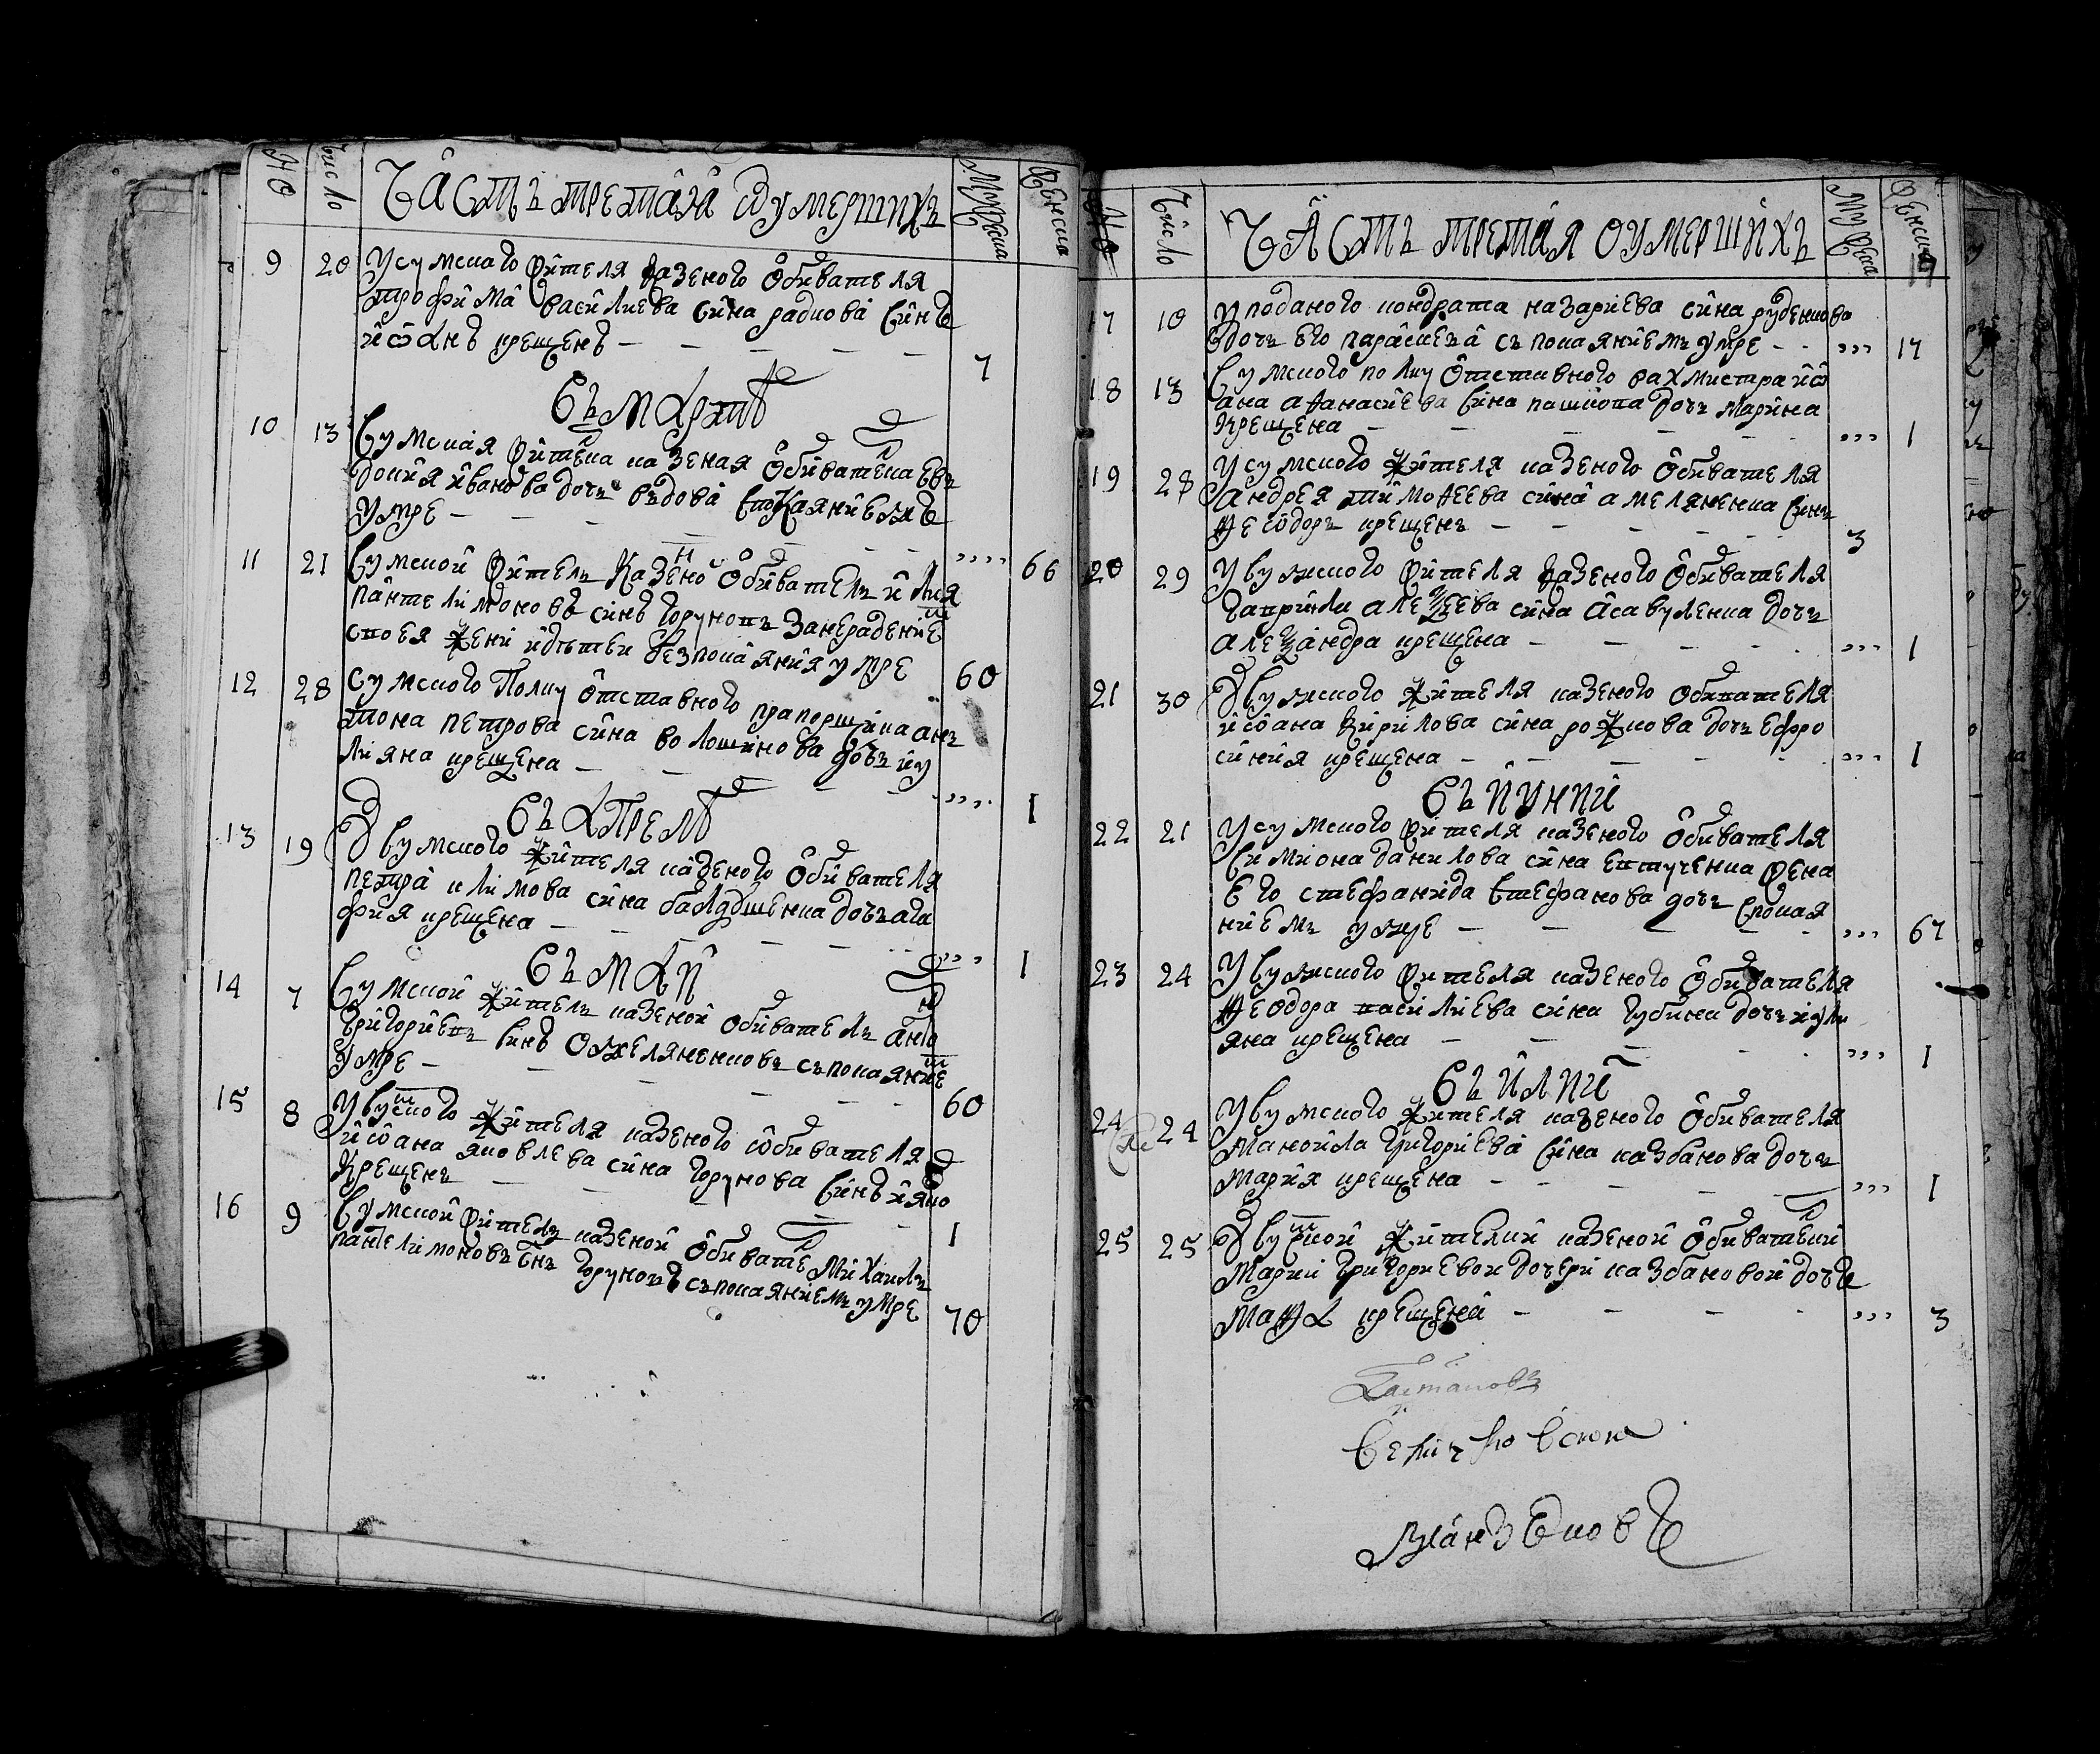 № Число Часть третая оумершихъ Мужеска Женска
9 20 У сумскаго жителя казеного обивателя
трофима василиева сина радкова синъ
иѡанъ крещенъ — — — — — 7
Въ мартѣ
10 13 Сумская жителка казеная обивателка евъ
докия иванова дочъ въдова спокаяниемъ
умре — — — — — „„ 66
11 21 Сумской жителъ казеной обивателъ илия
пантелимоновъ синъ горуновъ занерадение
своея жени идѣтеи безпокаяния умре 60
12 28 Сумского полку отставного прапорщика анъ
тона петрова сина волошинова дочъ иу
лияна крещена — — — — „„ 1
Въ апрелѣ
13 19 У сумского жителя казеного обивателя
петра климова сина дочъ ага
фия крещена — — — — „„ 1
Въ маи
14 7 Сумской жителъ казеной обивателъ
григориевъ синъ омеляненковъ съпокаяние
умре — — — — — 60
15 8 У сумского жителя казеного обивателя
иѡана яковлева сина горунова синъ яко
крещенъ — — — — 1
16 9 Сумской жителъ казеной обивате михаилъ
пантелимоновъ снъ горуновъ съпокаяниемъ умре 70
№ Число Часть третая оумершихъ Мужеска Женска
17 10 У поданого кондрата назариева сина руденкова
дочъ его параскева съ покаяниемъ умре — „„ 17
18 13 Сумского полку отставного вахмистра иѡ
ана аѳанасиева сина пашкова дочъ марина
крещена — — — — „„ 1
19 28 У сумского жителя казеного обивателя
андрея тимоѳеева сина амеляненка синъ
ѳеодоръ крещенъ — — — — 3
20 29 У сумского жителя казеного обивателя
гаврила алеѯеева сина асавуленка дочъ
алеѯандра крещена — — — „„ 1
21 30 У сумского жителя казеного обивателя
иѡана кирилова сина рожкова дочъ ефро
синия крещена — — — — „„ 1
Въ иунии
22 21 У сумского жителя казеного обивателя
симиона данилова сина жена
его стефанида стефанова дочъ спокая
ниемъ умре — — — — „„ 67
23 24 У сумского жителя казеного обивателя
ѳеодора василиева сина губина дочъ иули
яна крещена — — — „„ 1
Въ иулии
24 24 У сумского жителя казеного обивателя
манойла григориева сина казбанова дочъ
мария крещена — — — — „„ 1
25 25 У сумской жителки казеной обивателки
марии григориевои дочери казбановой дочъ
крещена — — — — „„ 3